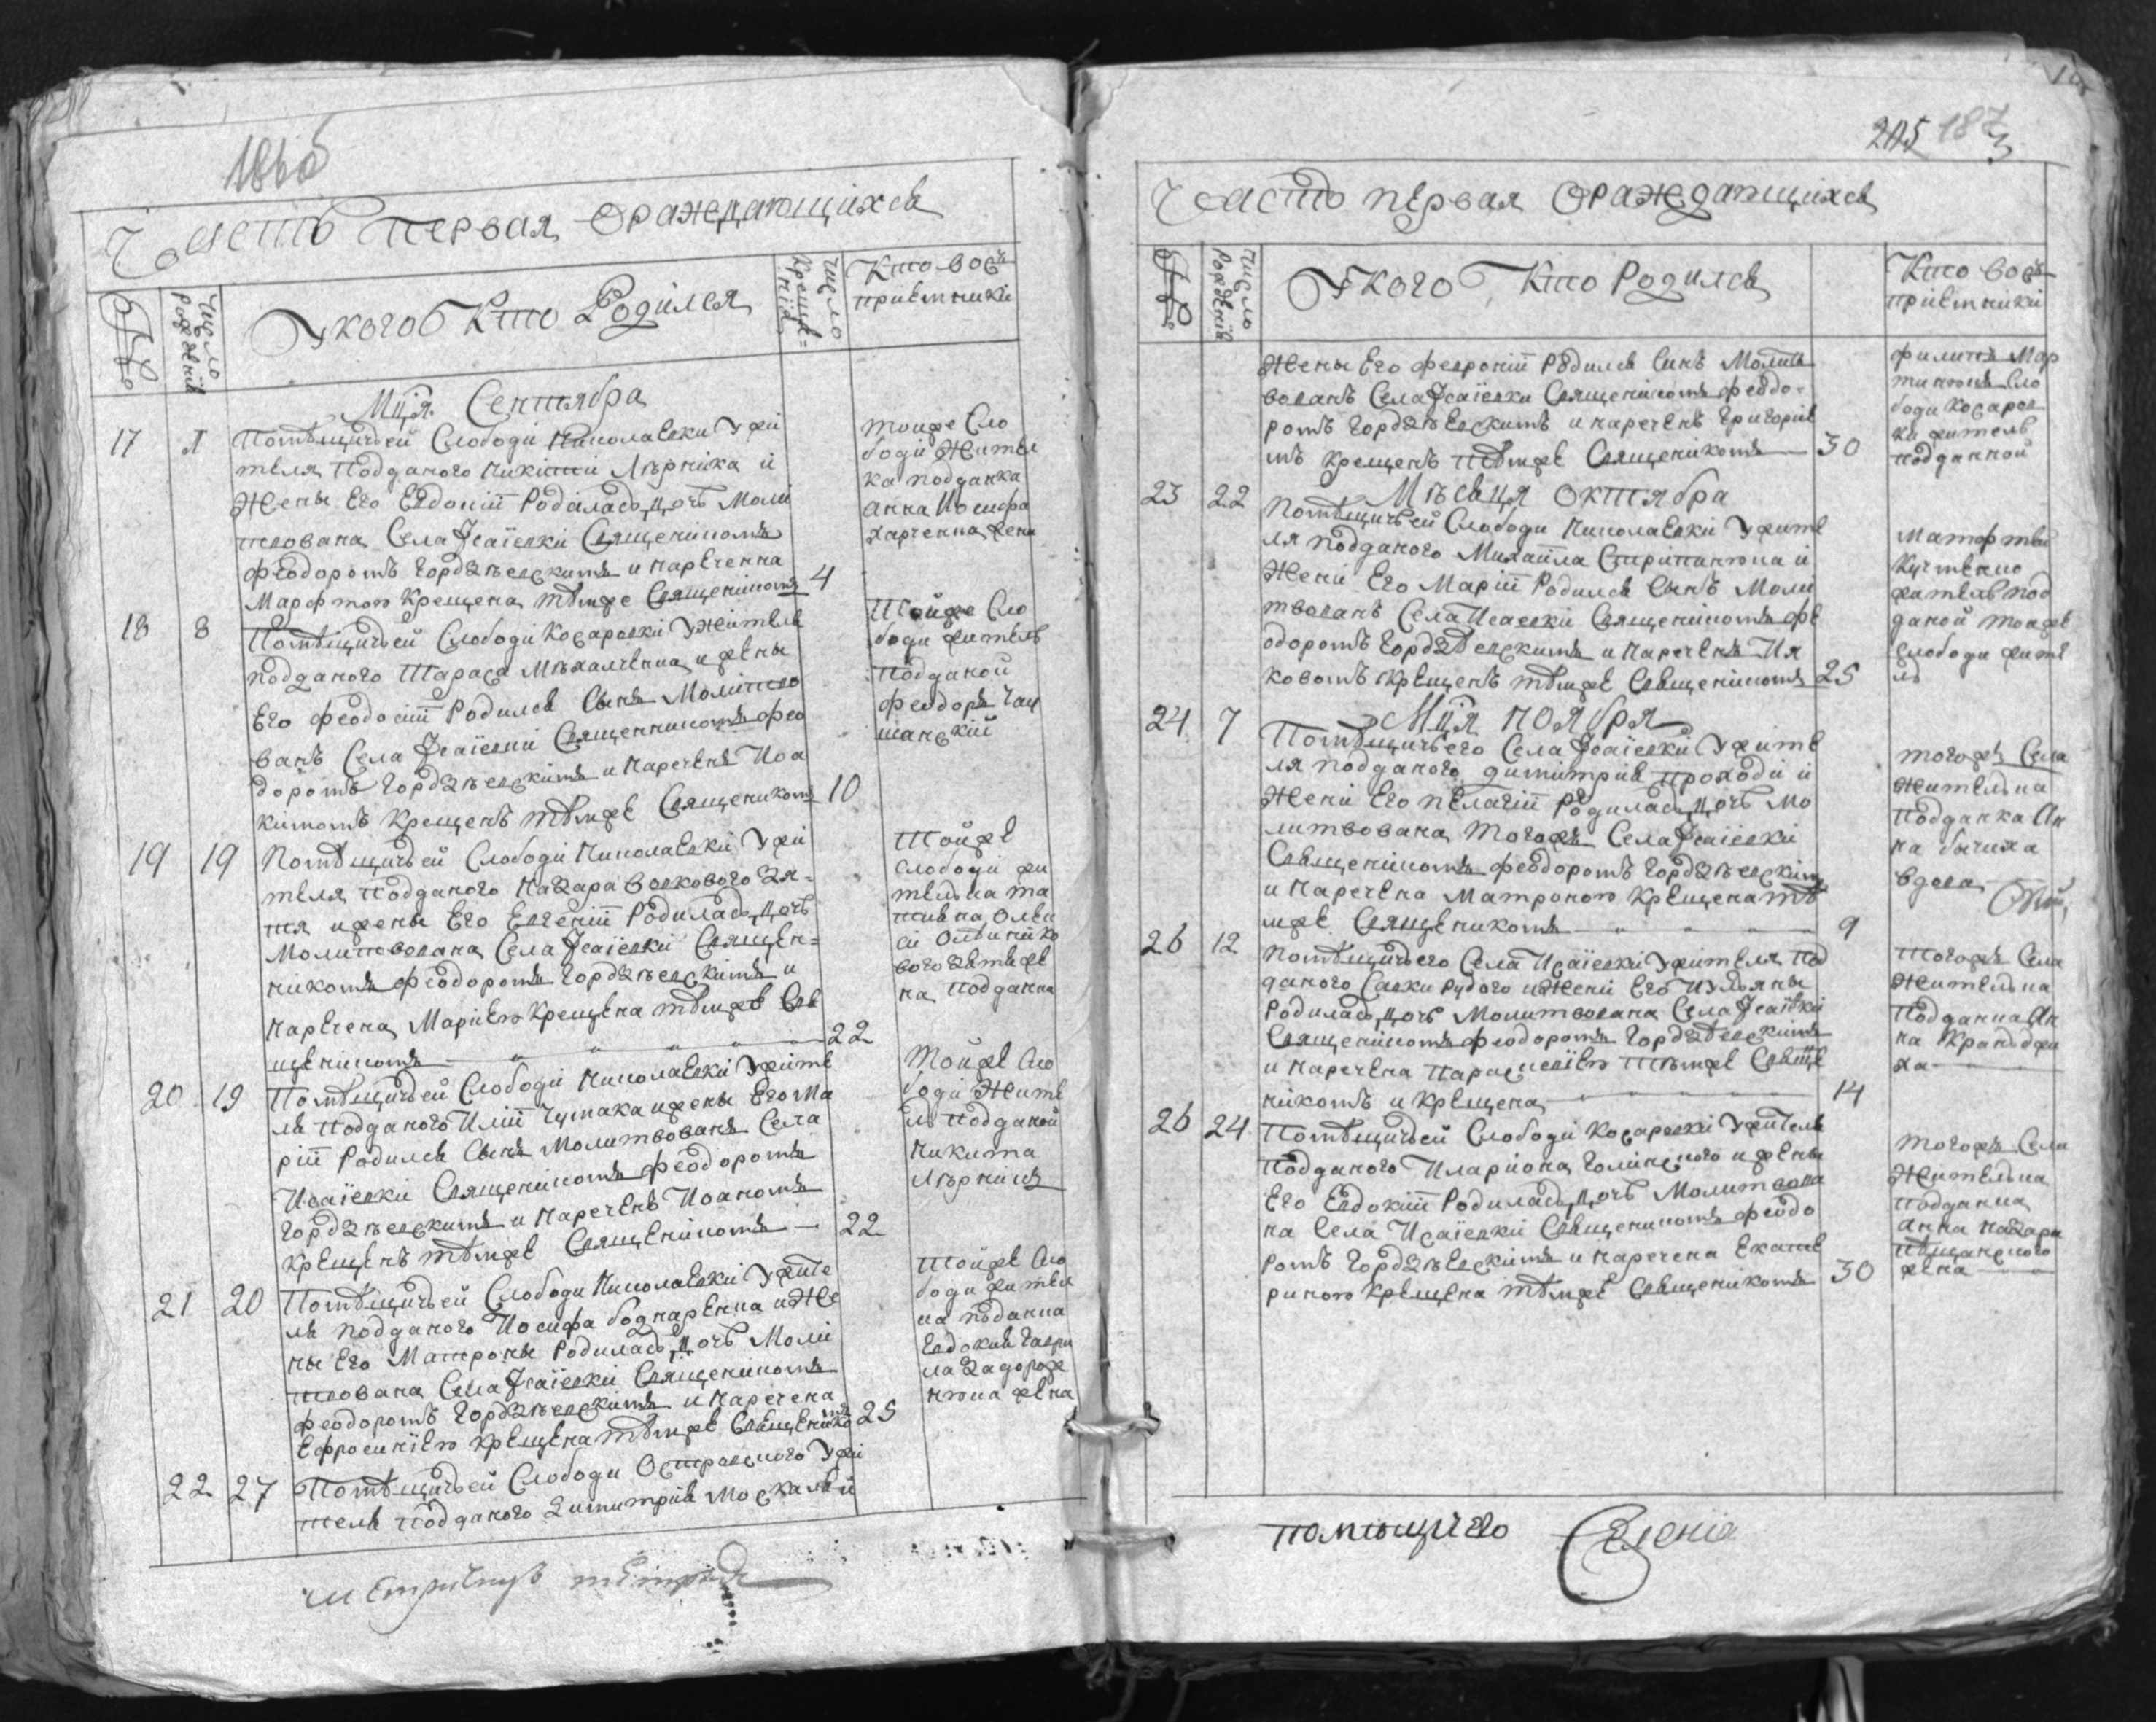 186 об
Часть первая о раждающихся
№
Число рождения
У кого Кто Родился
Число Креще=ния
Кто Восъприемники
Мця Сентября
17 1 Помѣщичьей Слободи Николаевки У жи
теля подданого Никити Лѣрника и
жены Его Евдокіи Родилась дочь Моли
твована Села Исаіевки Священикомъ
Феодоромъ Гордзѣевскимъ и нареченна
Марфтою Крещена тѣмже Священикомъ 4
тоиже Сло
боди Жител
ка подданка
Анна Иосифа
Харченка жена
18 8 Помѣщичьей Слободи Косаровки У жителя
подданого Тараса Михалченка и жены
Его Феодосіи Родился Сынъ Молитво
ванъ Села Исаіевки Священникомъ Фео
доромъ Гордзѣевскимъ и нареченъ Иоа
кимомъ Крещенъ тѣмже Священикомъ 10
Тойже Сло
боди житель
подданой
Феодоръ Чац
шанский
19 19 Помѣщичьей Слободи Николаевки У жи
теля подданого Назара Волкового Зя=
тя и жены Его Евгеніи Родилась дочь
Молитвована Села Исаіевки Священ=
никомъ Феодоромъ Гордзѣевскимъ и
наречена Мариею Крещена тѣмже Свя
щеникомъ 22
Тойже
Слободи жи
телька та
тияна Олек
сі Олѣйніко
вого Зятя же
на подданка
20 19 Помѣщичьей Слободи Николаевки У жите
ля подданого Иліи Чумака и жены Его Ма
ріи Родился Сынъ Молитвованъ Села
Исаіевки Священикомъ Феодоромъ
Гордзѣевскимъ и нареченъ Иоаномъ
Крещенъ тѣмже Священикомъ 22
Тойже Сло
боди Жите
ль подданой
Никита
Лѣрникъ
21 20 Помѣщичьей Слободи Николаевки У жите
ля подданого Иосифа Боднаренка и Же
ны Его Матроны Родилась дочь Моли
твована Села Исаіевки Священикомъ
Феодоромъ Гордзѣевскимъ и наречена
Ефросиніею Крещена тѣмже Священикомъ 25
Тойже Сло
боди жител
ка поданка
Евдокия Гаври
ла Задорож
нюка жена
22 27 Помѣщичьей Слободи Островского У жи
теля подданого Димитрія Москаля и
205 187
Часть первая о раждающихся
№
Число Рождения
У кого Кто Родился
Кто Восъприемники
Жены Его Февроніи Родился Синъ Молит
вованъ Села Исаіевки Священикомъ Феодо=
ромъ Гордзѣевскимъ и нареченъ Григорие
мъ Крещенъ тѣмже Священикомъ 30
Филипъ Мар
тинюкъ Сло
боди Косаров
ки житель
подданной
Мѣсяця Октября
23 22 Помѣщичьей Слободи Николаевки У жите
ля подданого Михаила Стрипанюка и
Жени Его Маріи Родился Сынъ Моли
твованъ Села Исаевки Священикомъ Фе
одоромъ Гордзѣевскимъ и нареченъ Ия
ковомъ Крещенъ тѣмже Священикомъ 25
Матфтей
житель под
даной тоиже
Слободи жите
ль
Мця Ноября
24 7 Помѣщичьего Села Исаіевки У жите
ля подданого Димитрия Проходи и
Жени Его Пелагіи Родилась дочь Мо
литвована тогожъ Села Исаіевки
Священикомъ Феодоромъ Гордзѣевскимъ
и наречена Матроною Крещена тѣ
мже Священикомъ 9
тогожъ Села
Жителька
подданка Ан
на Бычиха
вдова
26 12 Помѣщичьего Села Исаіевки У жителя под
даного Савки Рудого и Жени Его Иульяны
Родилась дочь Молитвована Села Исаіевки
Священикомъ Феодоромъ Гордзѣевскимъ
и наречена Параскевіею тѣмже Свяще
никомъ и Крещена 14
тогожъ Села
Жителька
подданка Ан
на
ха
26 24 Помѣщичьей Слободи Косаровки У жителя
подданого Илариона Голинского и жены
Его Евдокіи Родилась дочь Молитвова
на Села Исаіевки Священикомъ Феодо
ромъ Гордзѣевскимъ и наречена Екате
риною Крещена тѣмже Священикомъ 30
тогожъ Села
Жителька
подданка
Анна Назара
Пѣщанского
жена
помѣщичего Селенія